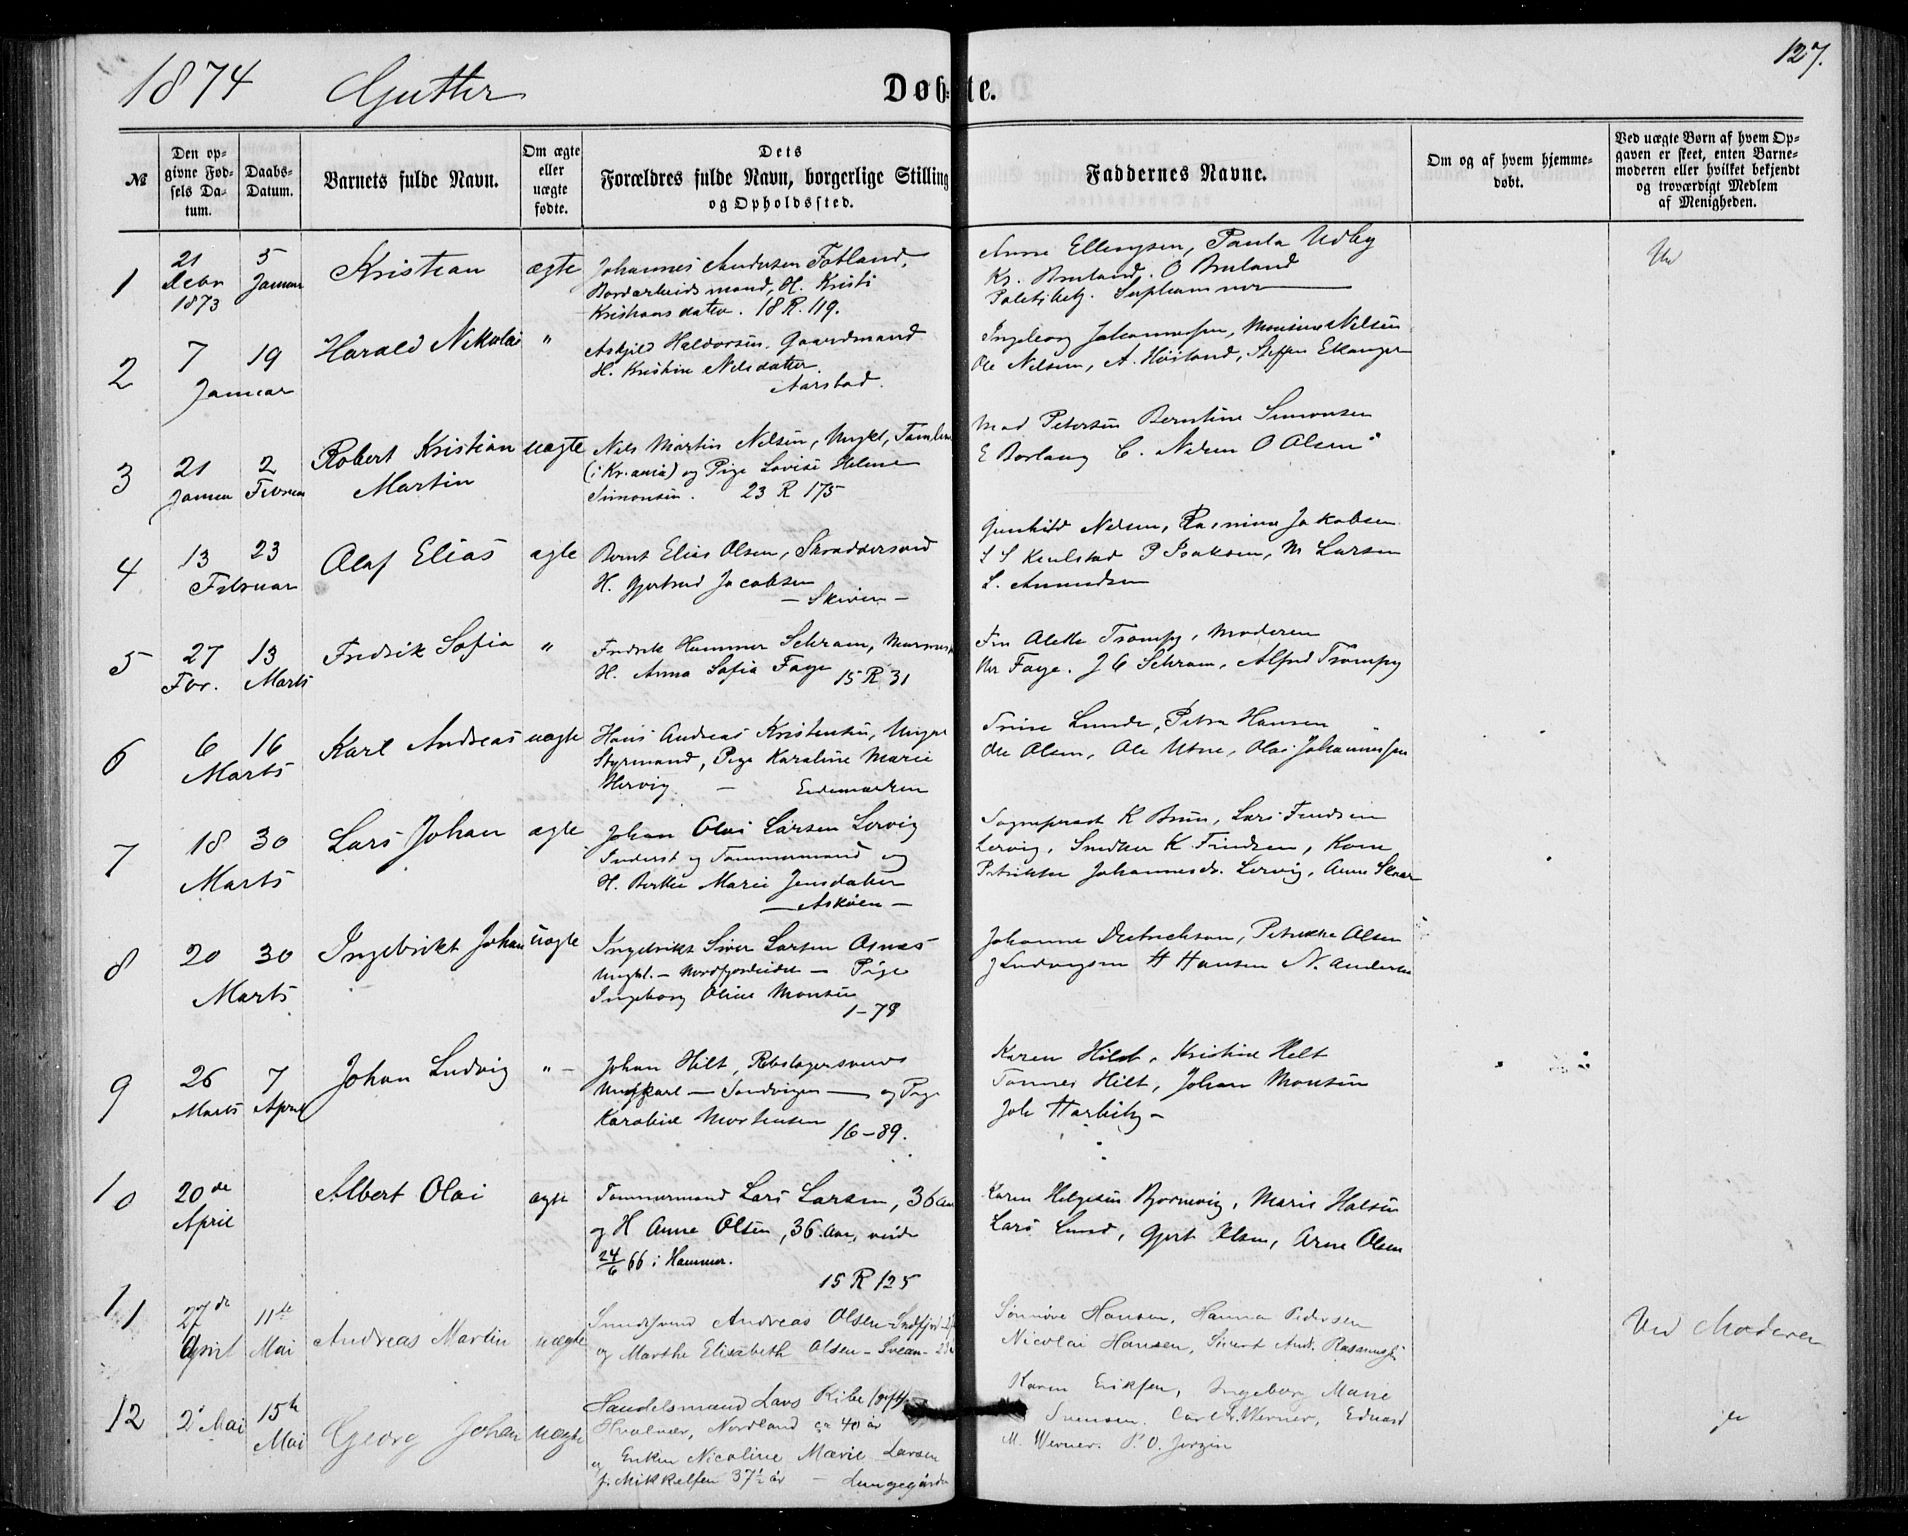 1874 Gutter Døbte. 127.
№
Den opgivne Fødsels Datum.
Daabs-Datum.
Barnets fulde Navn.
Om ægte eller uægte fødte.
Dets Forældres fulde Navn, borgerlige Stilling og Opholdssted.
Faddernes Navne.
Om og af hvem hjemmedøbt.
Ved uægte Børn af hvem Opgaven er skeet, enten Barnemoderen eller hvilket bekjendt og troværdigt Medlem af Menigheden.
1 21 Decbr 1873 5 Januar Kristian ægte
Johannes Andersen Fotland,
Bordarbeidsmand, H. Kristi
Kristiansdatter. 18 R. 119.
Anne Ellingsen, Paula Udby
Kr. Bruland. O Bruland
2 7 19 Januar Harald Nikolai "
Askjild Haldorsen. Gaardmand
H. Kristine Nilsdatter.
Aarstad.
Ingeborg Johannessen, Monsine Nilsen
Ole Nilsen, A. Høiland, Steffen Ekanger
3 21 Januar 2 Februar Robert Kristian Martin uægte
Nils Martin Nilsen, Ungkl,
(i Kr.ania) og Pige Lovise Helene
Simonsen. 23 R 175
Mad Petersen Berntine Simonsen
E Borlaug C. Nilsen O Olsen
4 13 23 Februar Olaf Elias ægte
Bernt Elias Olsen, Skræddersvend
H. Gjertrud Jacobsen
— Skiven —
Gunhild Nilsen, Rasmine Jakobsen
P Isaksen, M Larsen
L. Amundsen
5 27 Fbr. 13 Marts Fredrik Sofia "
Fredrik Hammer Schram,
H. Anna Sofia Faye 15 R 31
Fru Alette Trømpy, Moderen
Hr Faye. J C Schram, Alfred Trømpy
6 6 16 Marts Karl Andreas uægte
Hans Andreas Kristensen, Ungk
Styrmand, Pige Karoline Marie
Hervig. — Eidemarken
Trine Lunde, Petra Hansen
Ole Olsen, Ole Utne, Olai Johannessen
7 18 30 Marts Lars Johan ægte
Johan Olai Larsen Lervig
Inderst og Tømmermand og
H. Berthe Marie Jensdatter
— Askøen —
Sogneprest K Brun, Lars Knudsen
Lervig, Snedker K. Knudsen, Kone
Petrikke Johannesdr. Lervig, Anne Skaar
8 20 30 Marts Ingebrikt Johan uægte
Ingebrikt Siver Larsen Osnes
Ungkl. — Nordfjordeidet — Pige
Ingeborg Oline Monsen
1 – 78
Johanne Dietrichson, Petrikke Olsen
J Ludvigsen H Hansen N. Andersen
9 26 Marts 7 April Johan Ludvig " –
Johan Hilt, Rebslagersvend
Ungkarl — Sandvigen — og Pige
Karoline Mortensen 16 – 89.
Karen Hildt, Kristine Helt
Tønnes Hilt, Johan Monsen
Joh Harbitz –
10 20de April Albert Olai ægte
Tømmermand Lars Larsen, 36 Aar
og H Anne Olsen, 36 Aar, viede
24/6 66 i Hammer.
15 R 125
Karen Helgesen Bjørnevig, Marie Halsen
Lars Lund, Gjert Olsen, Arne Olsen
11 27de April 11te Mai Andreas Martin uægte
Smedsvend Andreas Olsen
og Marthe Elisabeth Olsen
Sønnøve Hansen, Hanna Pedersen
Nicolai Hansen, Sivert And. Rasmussen
Ved Moderen
12 2 Mai 15de Mai Georg Johan uægte
Handelsmand Lars Ribe (gift)
Hvalvær, Nordland ca 40 år
og Enken Nicoline Marie Larsen
f. Mikkelsen 37½ år — Lungegården
Karen Eriksen, Ingeborg Marie
Svensen. Carl Werner, Eduard
M. Werner. P. O.